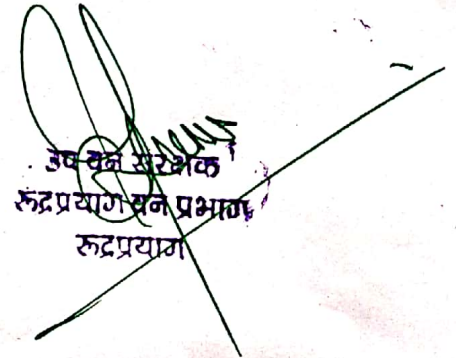 उप वन संरक्षक
रूद्रप्रयाग वन प्रभाग
रूद्रप्रयाग